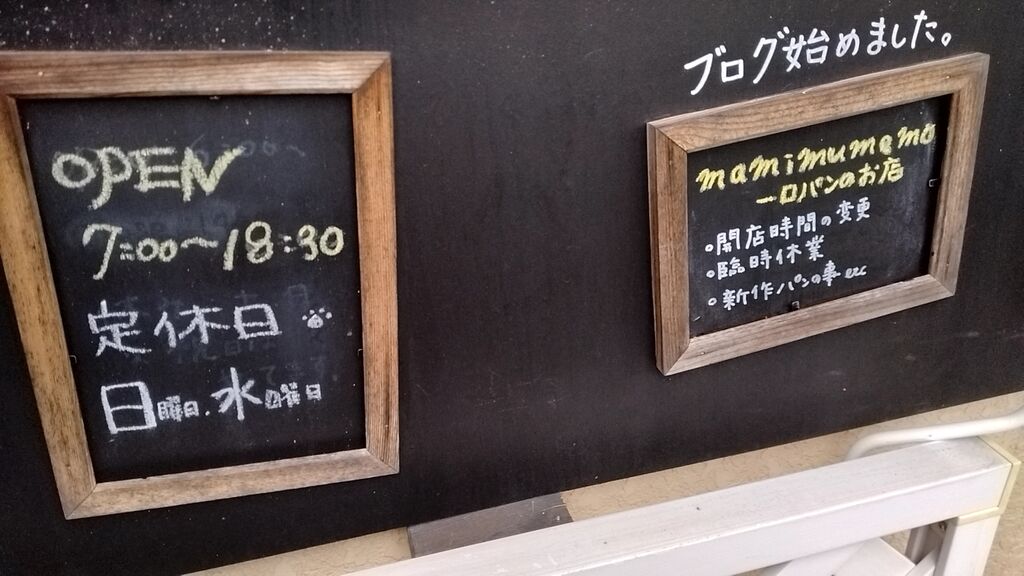 OPEN
7:00〜18:30
定休日
日曜日.水曜日
ブログ始めました。
mamimumemo
一口パンのお店
。開店時間の変更
・臨時休業
。新作パンの事etc